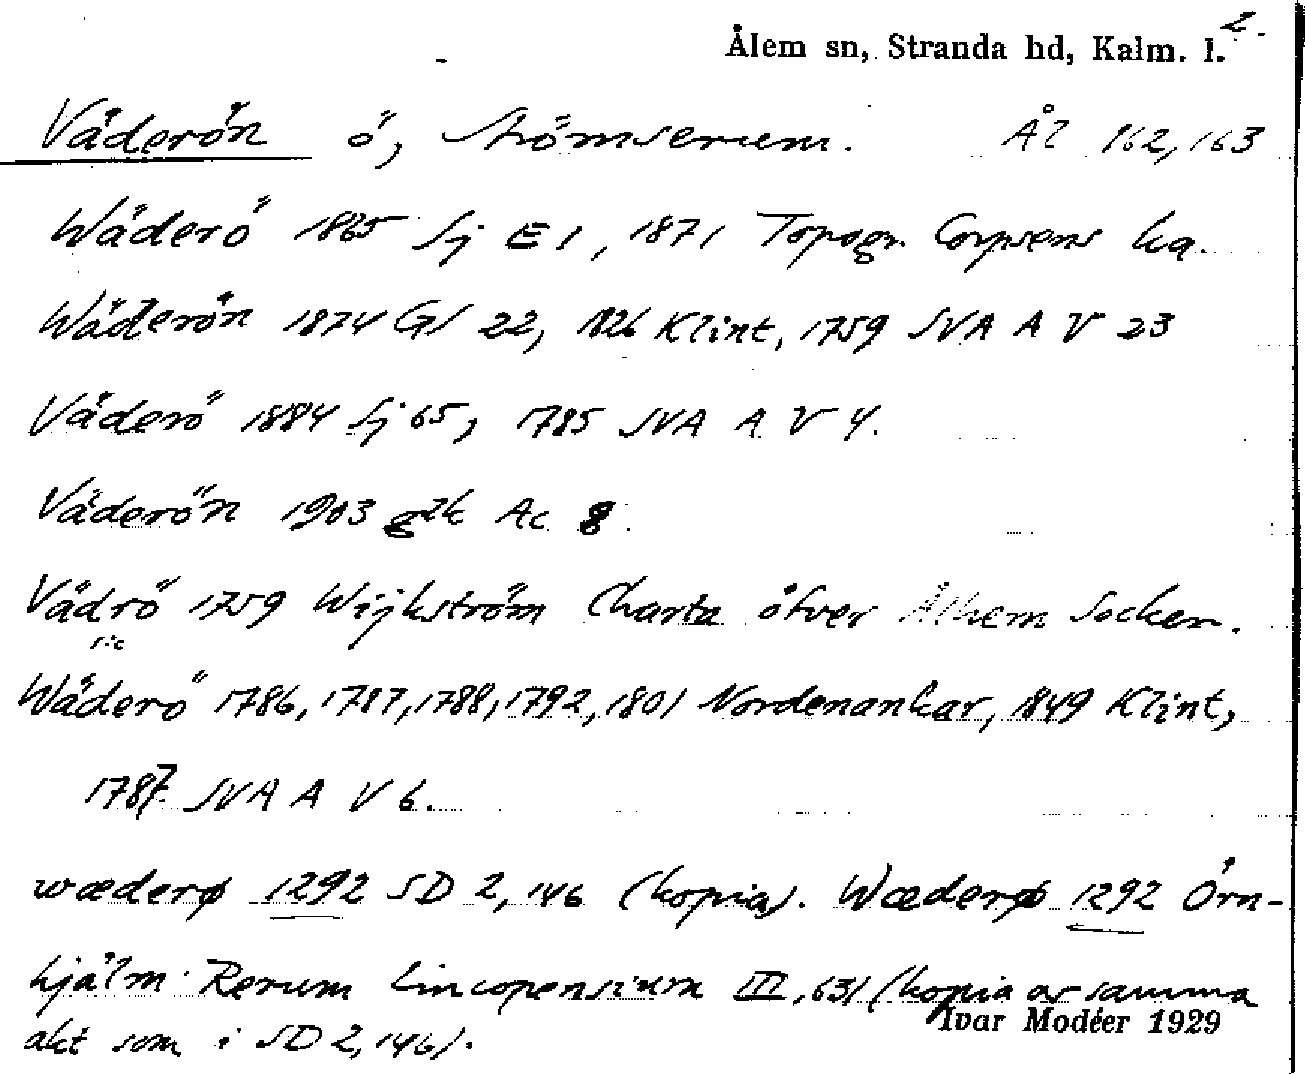 2.
Ålem sn, Stranda hd, Kalm. l.
Väderön ö, Strömserum. Ål 162, 163
Wäderö 1865 Sj E 1, 1871 Topogr. Corpsens ka.
Wäderön 1874 GS 22, 1826 Klint, 1759 SVA A V 23
Väderö 1884 Sj 65, 1785 SVA A V 4.
Väderön 1903 gzk Ac 8.
Vädrö 1759 Wijkström Charta öfver Ålhem Socken.
sic
Wäderö 1786, 1787, 1788, 1792, 1801 Nordenankar, 1849 Klint,
1787 SVA A V 6.
wæderø 1292 SD 2, 146 (kopia). Wæderø 1292 Örn-
hjälm Rerum Lincopensium III, 631 (kopia av samma
akt som i SD 2, 146).
Ivar Modéer 1929